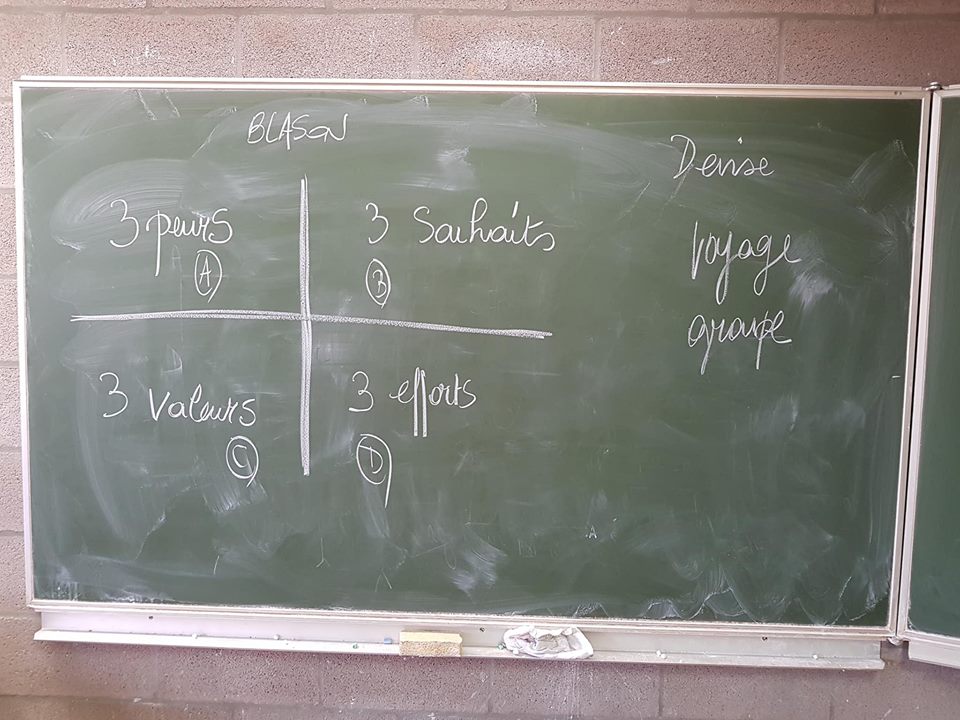 BLASON
3 peurs
A
3 Souhaits
B
3 valeurs
C
3 efforts
D
Devise
voyage
groupe